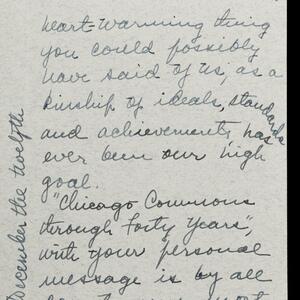 heart-warming thing
you could possibly
have said of us, as a
kinship of ideals, standards
and achievements, has
ever been our high
goal.
"Chicago Commons
through Forty Years",
with your personal
message is by all
December the twelfth